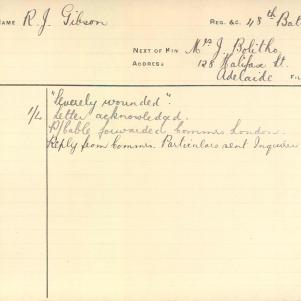 NAME R. J. Gibson REG. &C. 48th Bat
NEXT OF KIN Mrs J. Bolitho
ADDRESS 128 Halifax St.
Adelaide
"Severely wounded".
1/4 Letter acknowledged.
P/Cable forwarded Commrs London.
Reply from Commrs. Particulars sent Inquirer